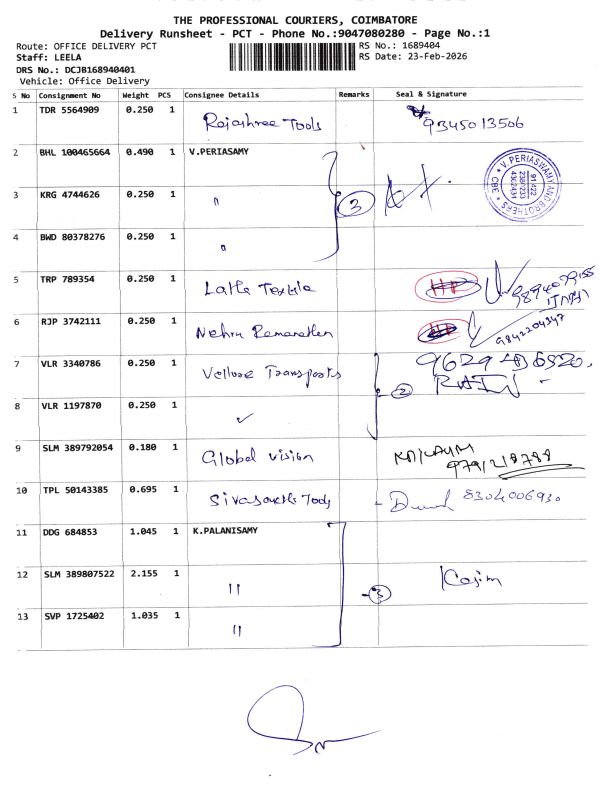 THE PROFESSIONAL COURIERS, COIMBATORE
Delivery Runsheet - PCT - Phone No.:9047080280 - Page No.:1
Route: OFFICE DELIVERY PCT
RS No.: 1689404
Staff: LEELA
RS Date: 23-Feb-2026
DRS No.: DCJB168940401
Vehicle: Office Delivery
S No Consignment No Weight PCS Consignee Details Remarks Seal & Signature
1 TDR 5564909 0.250 1 Rajashree Tools 9345013506
2 BHL 100465664 0.490 1 V.PERIASAMY
V. PERIASWAMY AND BROTHERS * CBE *
3 KRG 4744626 0.250 1 " 3
4 BWD 80378276 0.250 1 "
5 TRP 789354 0.250 1
6 RJP 3742111 0.250 1 Nehru 9842204347
7 VLR 3340786 0.250 1 Vellore Transports
8 VLR 1197870 0.250 1 2
9 SLM 389792054 0.180 1 Global vision 9791218788
10 TPL 50143385 0.695 1 Sivasakthi Tools 8304006930
11 DDG 684853 1.045 1 K.PALANISAMY
12 SLM 389807522 2.155 1 " 3 Kasim
13 SVP 1725402 1.035 1 "